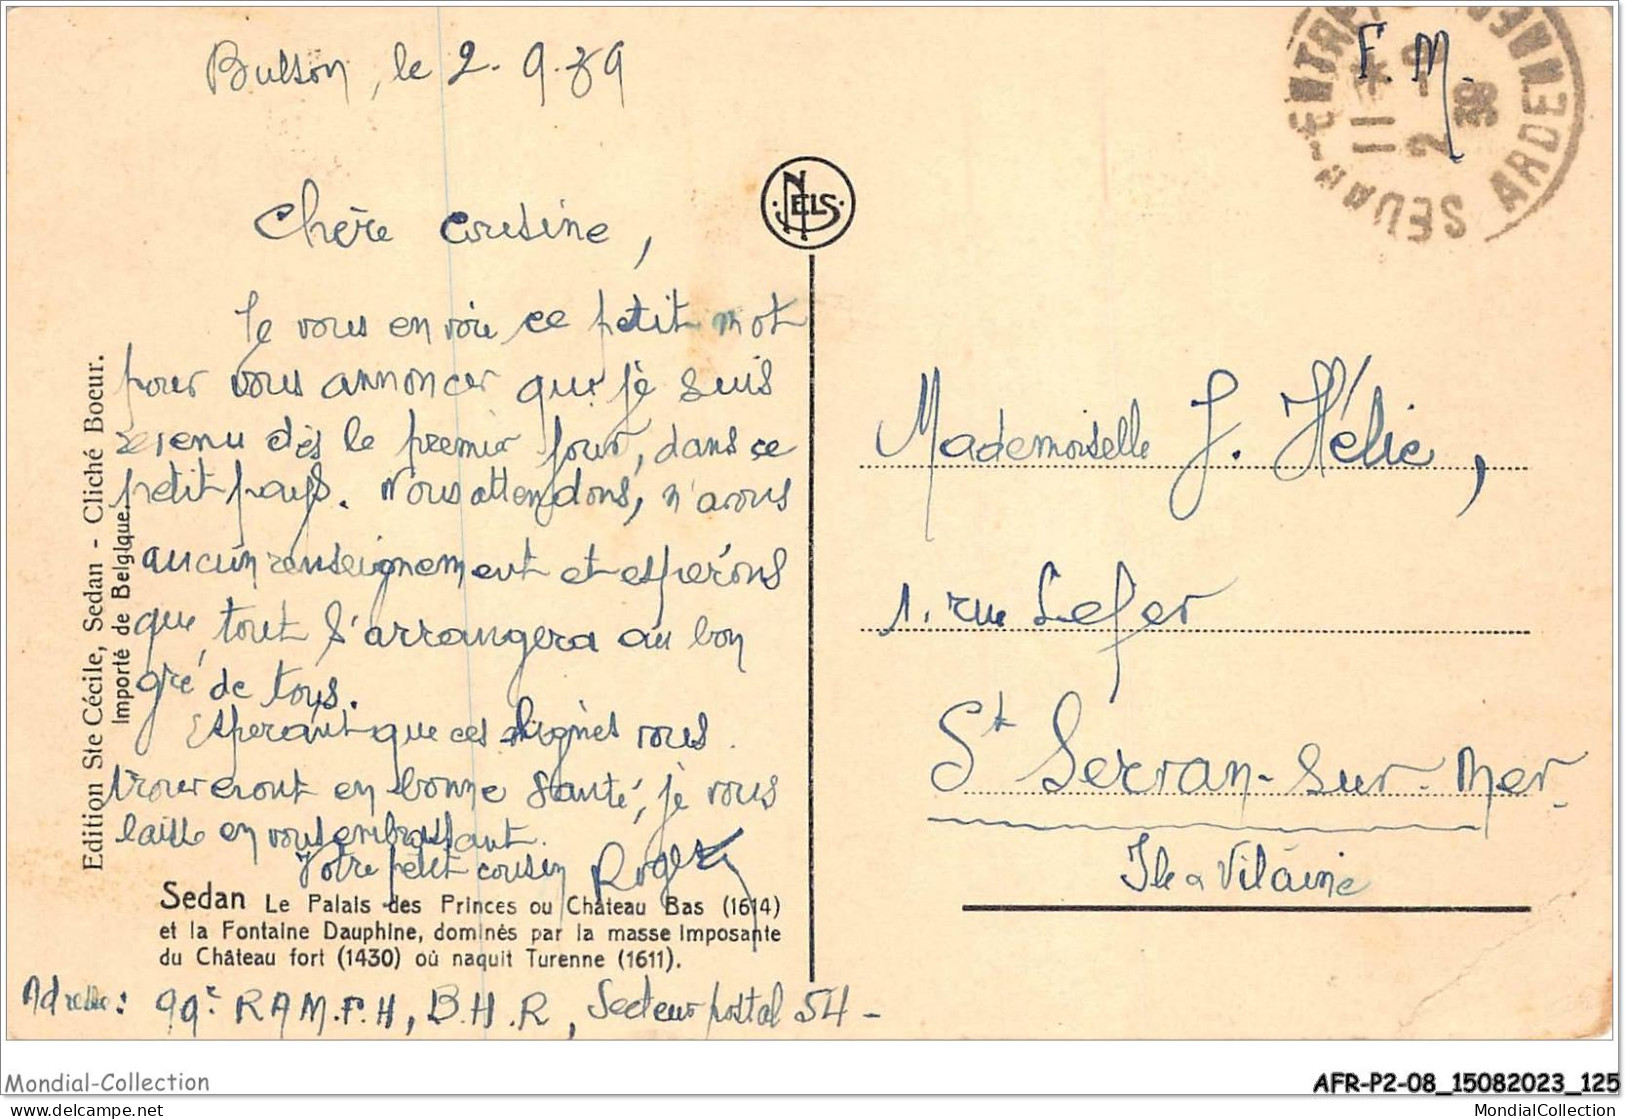 Bulson, le 2.9.39
F.M.
SEDAN-ENTREPOT ARDENNES
11 *
2 -9
39
NELS
Chère Cousine,
Je vous envoie ce petit mot
pour vous annoncer que je suis
revenu dès le premier jour, dans ce
petit pays. Nous attendons, n'avons
aucun renseignement et espérons
que tout s'arrangera au bon
gré de tous.
Espérant que ces lignes vous
trouveront en bonne santé, je vous
laisse en vous embrassant.
Votre petit cousin Roger
Edition Ste Cécile, Sedan - Cliché Boeur.
Importé de Belgique.
Sedan Le Palais des Princes ou Château Bas (1614)
et la Fontaine Dauphine, dominés par la masse imposante
du Château fort (1430) où naquit Turenne (1611).
Adresse: 99e R.A.M.F.H, B.H.R, Secteur postal 54 -
Mademoiselle J. Hélie,
1. rue Lefer
St Servan-sur-Mer
Ile a Vilaine
Mondial-Collection
AFR-P2-08_15082023_125
www.delcampe.net
MondialCollection